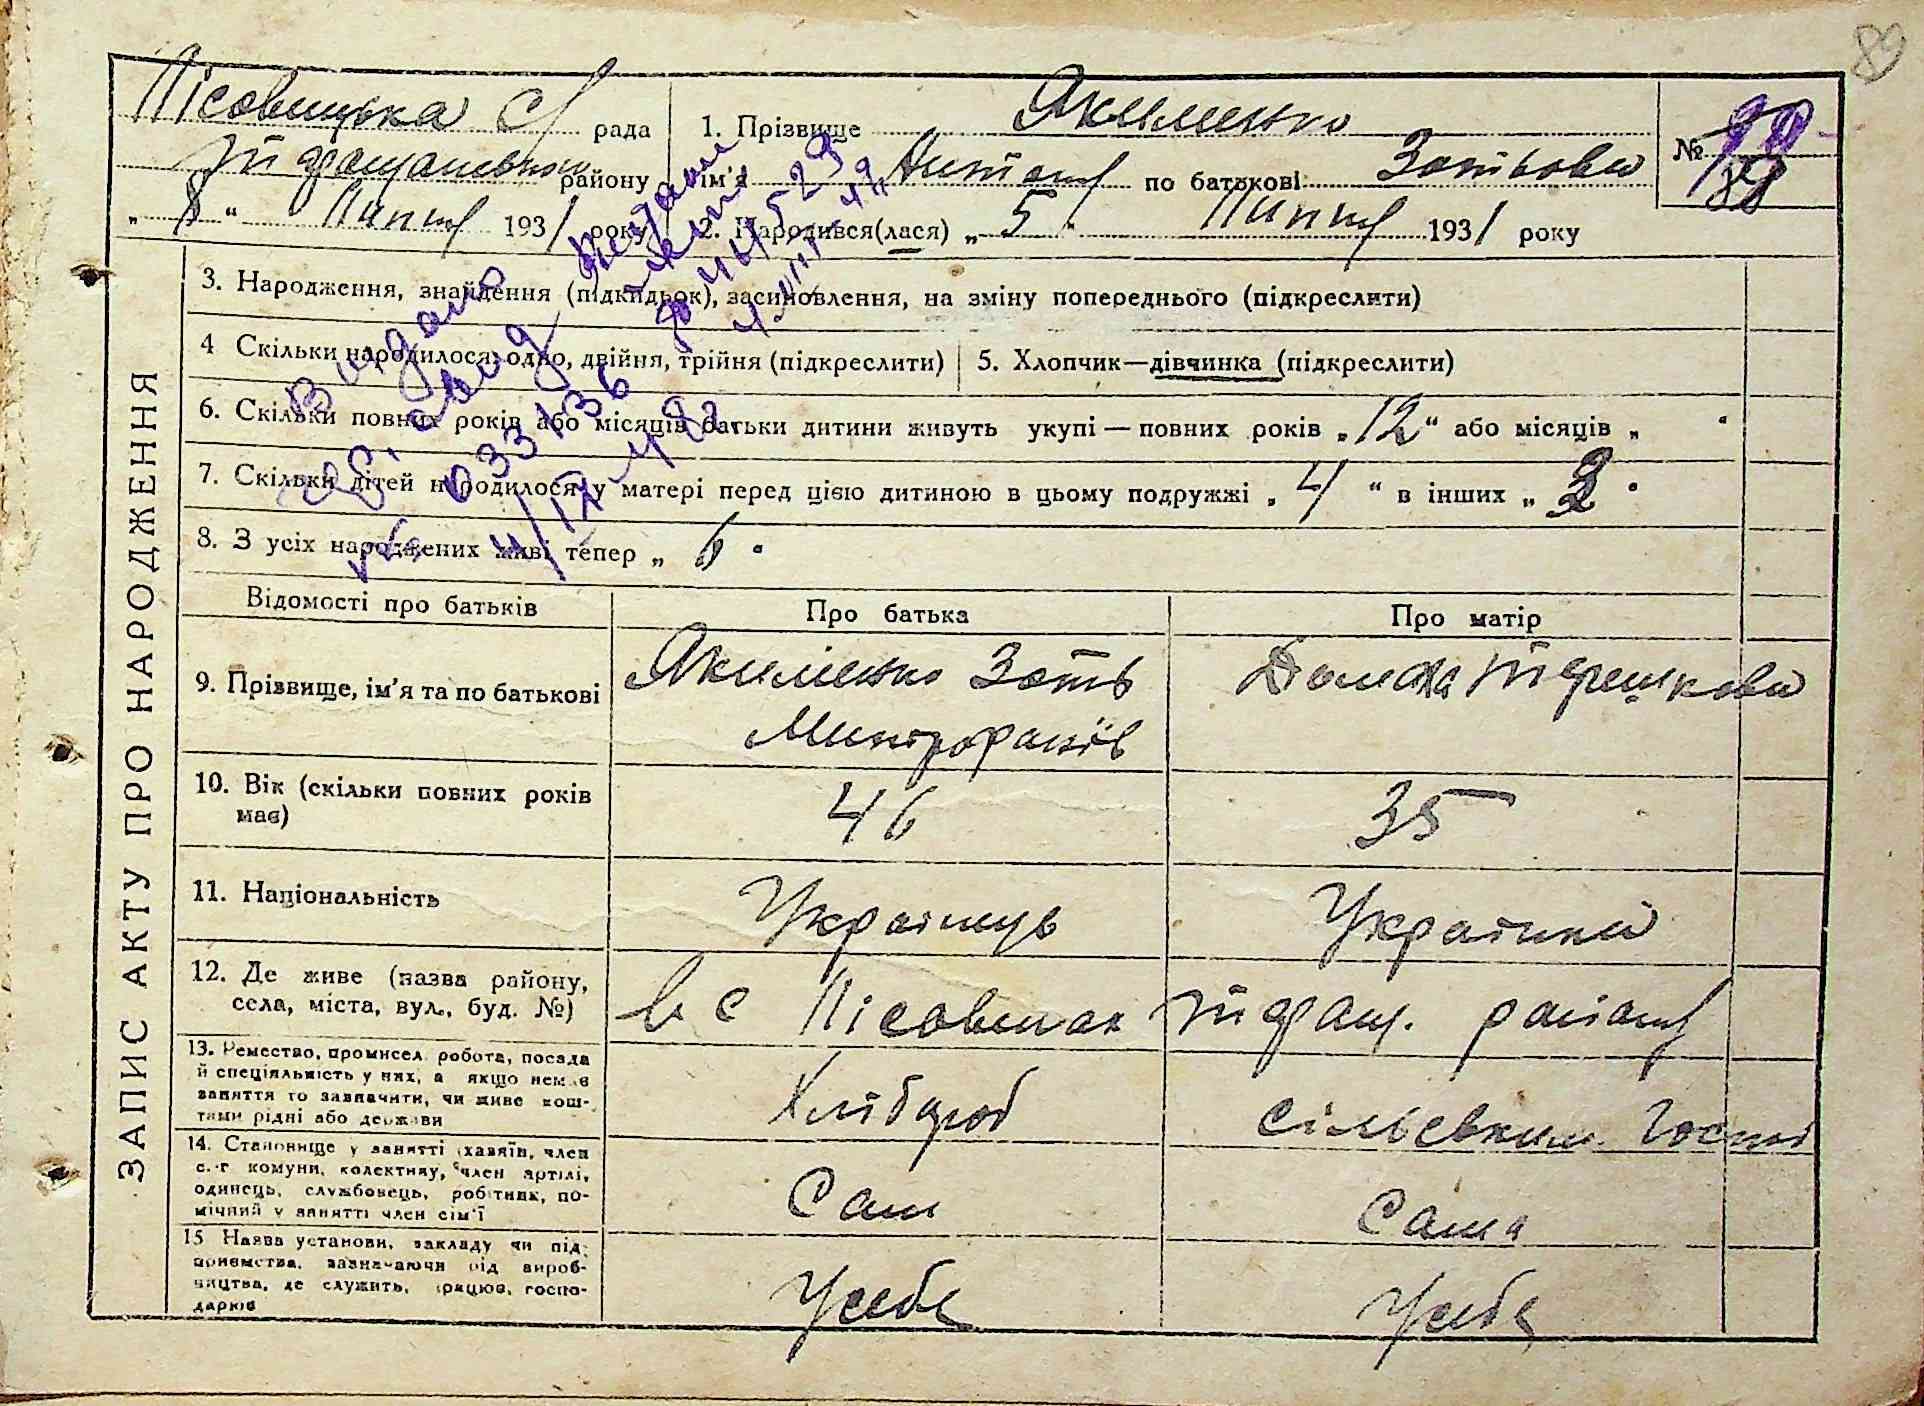 89
Пісовицька с/ рада
Тідращанського району
„ 8 “ Липня 1931 року
1. Прізвище Якименко
ім'я по батькові Зотьова
2. Народився(лася) „ 5 “ Липня 1931 року
№ 90
88
3. Народження, знайдення (підкидьок), засиновлення, на зміну попереднього (підкреслити)
4 Скільки народилося: одно, двійня, трійня (підкреслити)
5. Хлопчик—дівчинка (підкреслити)
6. Скільки повних років або місяців батьки дитини живуть укупі — повних років „ 12 “ або місяців „ “
7. Скільки дітей народилося у матері перед цією дитиною в цьому подружжі „ 4 “ в інших „ 3 “
8. З усіх народжених живі тепер „ 6 “
Видано
033136
4/IV 48
529
ЗАПИС АКТУ ПРО НАРОДЖЕННЯ
Відомості про батьків
Про батька
Про матір
9. Прізвище, ім'я та по батькові
Якименко Зоть
Митрофанів
Домаха Терешкова
10. Вік (скільки повних років
має)
46
35
11. Національність
Українць
Українка
12. Де живе (назва району,
села, міста, вул., буд. №)
в с Лісовичах Т ращ. району
13. Ремество, промисел робота, посада
й спеціяльність у них, а якщо немає
заняття то зазначити, чи живе кош-
тами рідні або держави
Хлібороб
Сільським Господ
14. Становище у занятті (хазяїн, член
с.-г комуни, колективу, член артілі,
одинець, службовець, робітник, по-
мічний у занятті член сім'ї
Сам
Сама
15 Назва установи, закладу чи під-
приємства, зазначаючи рід вироб-
ництва, де служить, працює, госпо-
дарює
У себе
У себе